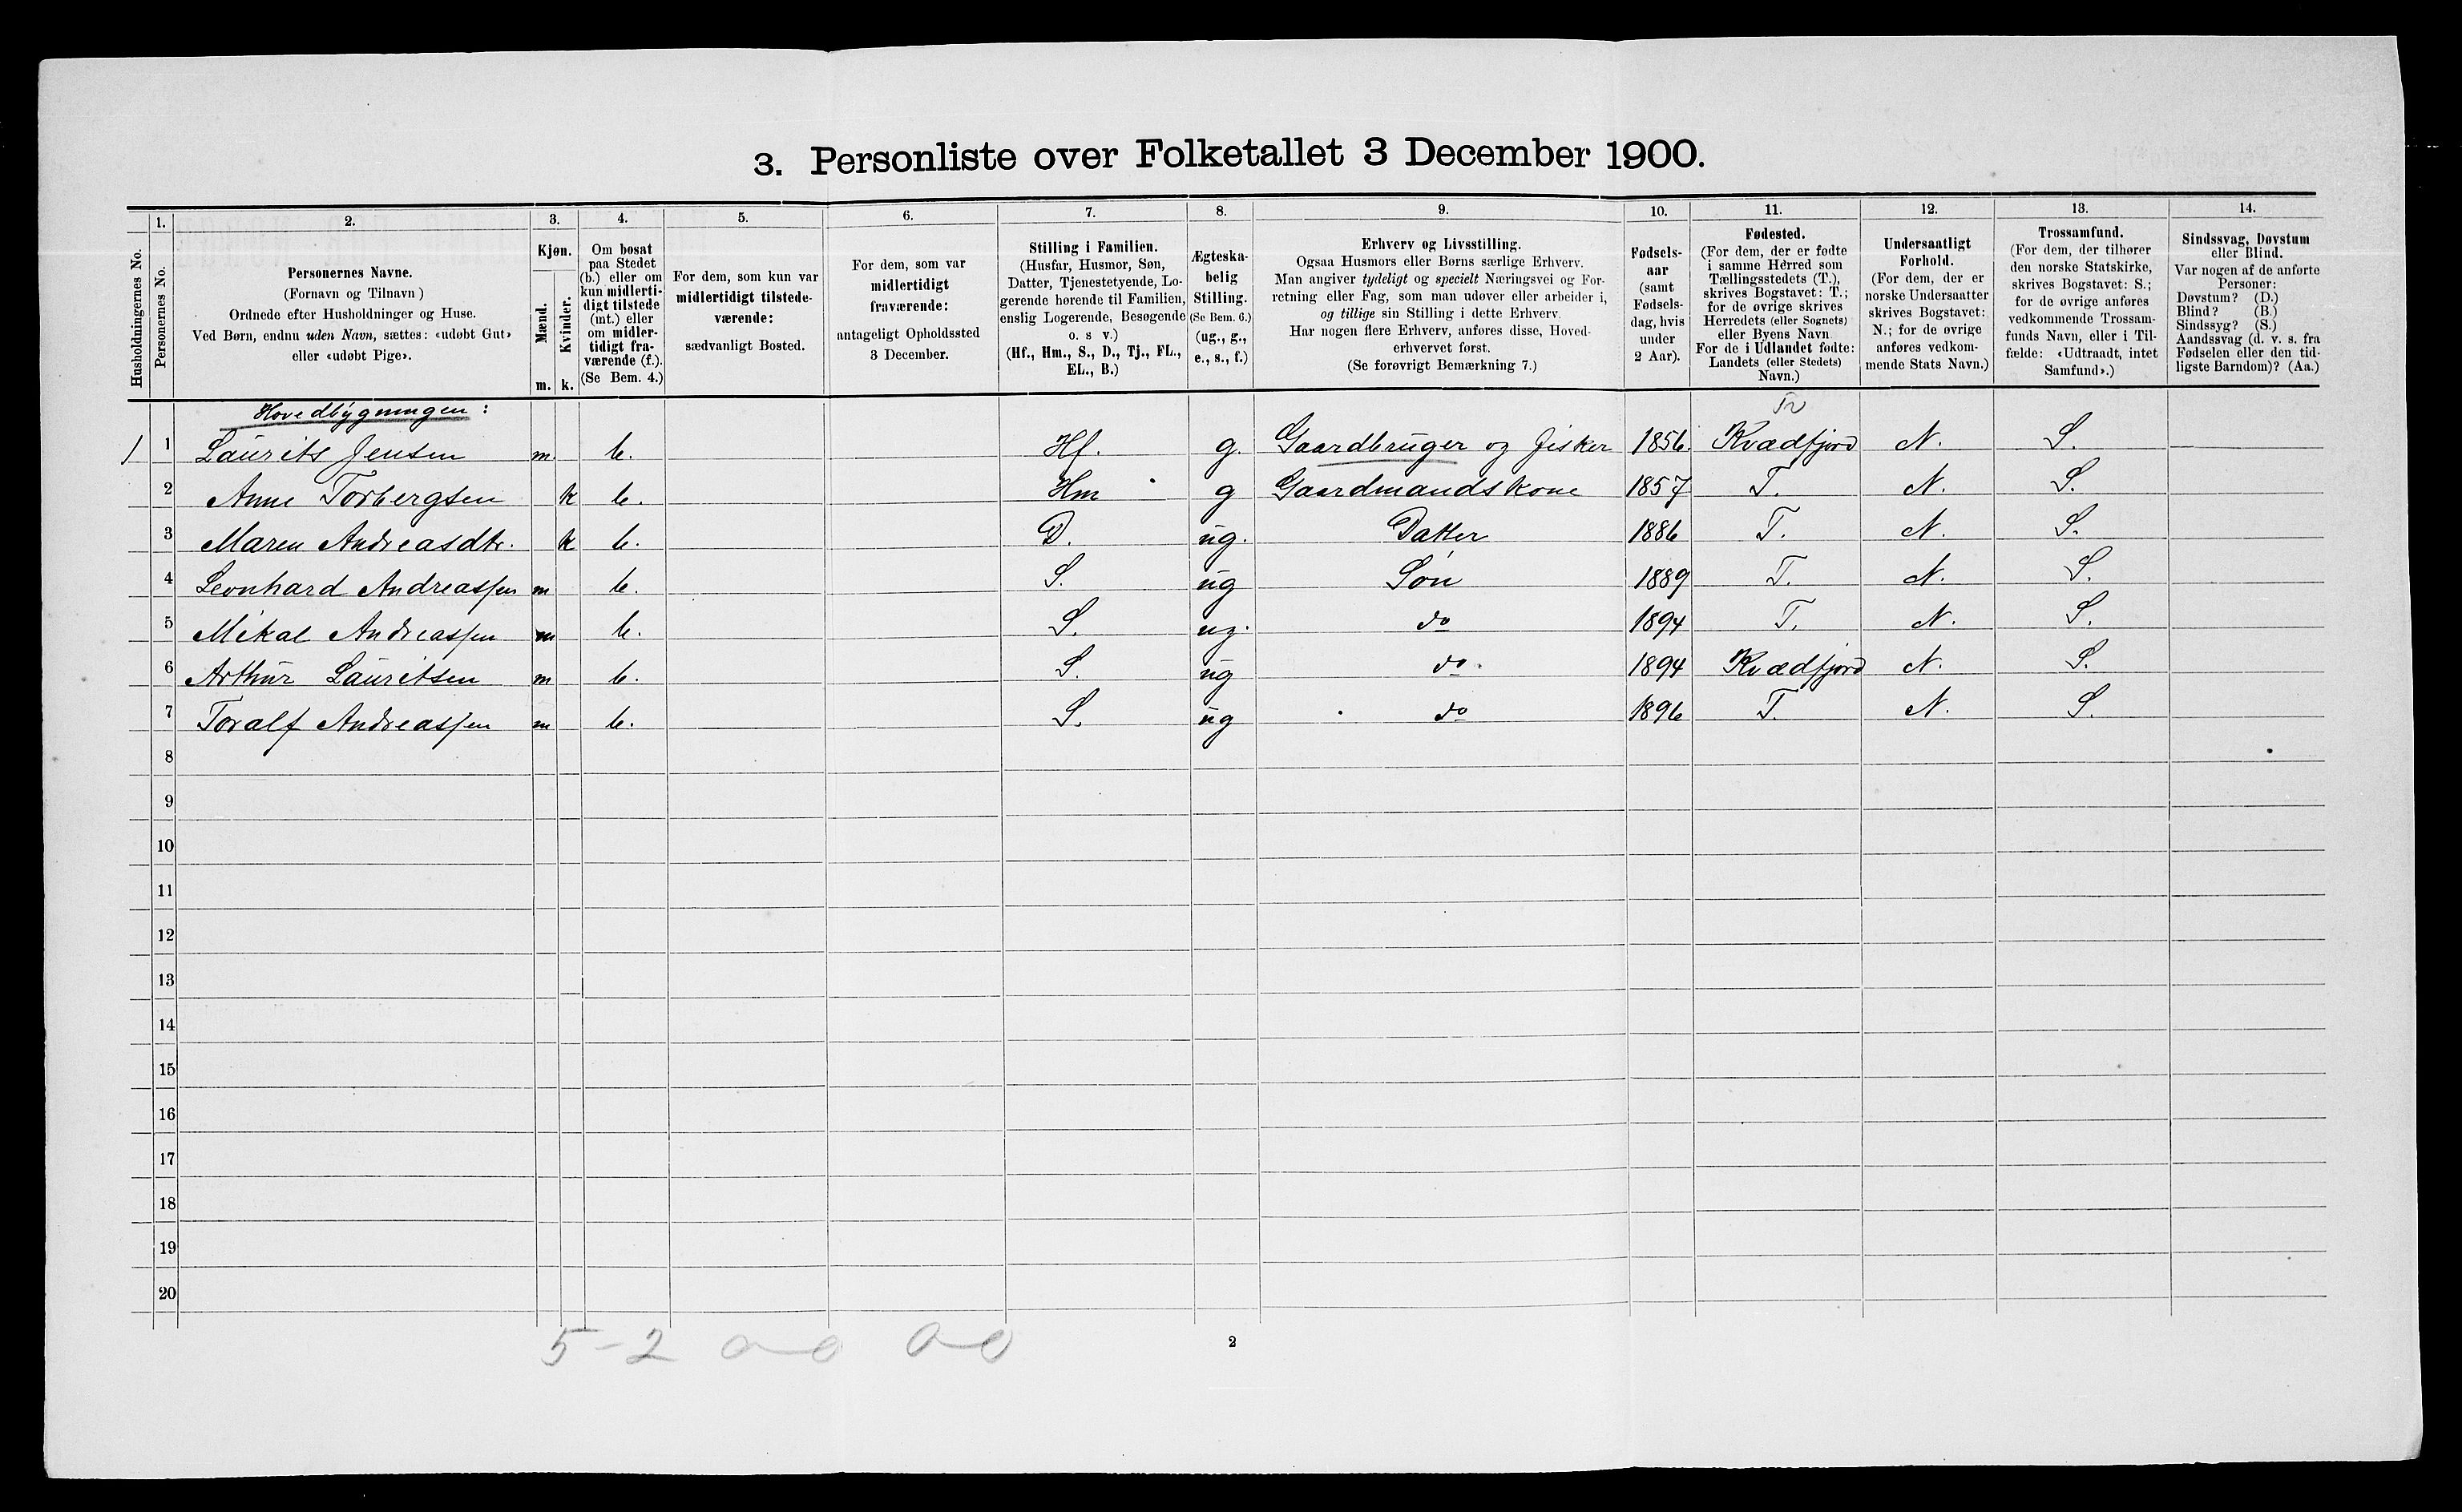 3. Personliste over Folketallet 3 December 1900.
1. 2. 3. 4. 5. 6. 7. 8. 9. 10. 11. 12. 13. 14.
Husholdningernes No.
Personernes No.
Personernes Navne.
(Fornavn og Tilnavn)
Ordnede efter Husholdninger og Huse.
Ved Børn, endnu uden Navn, sættes: «udøbt Gut»
eller «udøbt Pige».
Kjøn.
Mænd.
Kvinder.
m. k.
Om bosat
paa Stedet
(b.) eller om
kun midlerti-
digt tilstede
(mt.) eller
om midler-
tidigt fra-
værende (f.).
(Se Bem. 4.)
For dem, som kun var
midlertidigt tilstede-
værende:
sædvanligt Bosted.
For dem, som var
midlertidigt
fraværende:
antageligt Opholdssted
3 December.
Stilling i Familien.
(Husfar, Husmor, Søn,
Datter, Tjenestetyende, Lo-
gerende hørende til Familien,
enslig Logerende, Besøgende
o. s v.)
(Hf., Hm., S., D., Tj., FL.,
EL., B.)
Ægteska-
belig
Stilling.
(Se Bem. 6.)
(ug., g.,
e., s., f.)
Erhverv og Livsstilling.
Ogsaa Husmors eller Børns særlige Erhverv.
Man angiver tydeligt og specielt Næringsvei og For-
retning eller Fag, som man udøver eller arbeider i,
og tillige sin Stilling i dette Erhverv.
Har nogen flere Erhverv, anføres disse, Hoved-
erhvervet først.
(Se forøvrigt Bemærkning 7.)
Fødsels-
aar
(samt
Fødsels-
dag, hvis
under
2 Aar).
Fødested.
(For dem, der er fødte
i samme Herred som
Tællingsstedets (T.),
skrives Bogstavet: T.;
for de øvrige skrives
Herredets (eller Sognets)
eller Byens Navn.
For de i Udlandet fødte:
Landets (eller Stedets)
Navn.)
Undersaatligt
Forhold.
(For dem, der er
norske Undersaatter
skrives Bogstavet:
N.; for de øvrige
anføres vedkom-
mende Stats Navn.)
Trossamfund.
(For dem, der tilhører
den norske Statskirke,
skrives Bogstavet: S.;
for de øvrige anføres
vedkommende Trossam-
funds Navn, eller i Til-
fælde: «Udtraadt, intet
Samfund».)
Sindssvag, Døvstum
eller Blind.
Var nogen af de anførte
Personer:
Døvstum? (D.)
Blind? (B.)
Sindssyg? (S.)
Aandssvag (d. v. s. fra
Fødselen eller den tid-
ligste Barndom)? (Aa.)
Hovedbygningen:
1 1 Laurits Jensen m. b. Hf. g. Gaardbruger og fisker 1856. Kvædfjord N. S.
2 Anne Torbergsen k b. Hm g Gaardmandskone 1857 T. N. S.
3 Maren Andreasdtr. k b. D. ug. Datter 1886 T. N. S.
4 Leonhard Andreassen m b. S. ug Søn 1889 T. N. S.
5 Mikal Andreassen m b. S. ug. do 1894 T. N. S.
6 Arthur Lauritsen m b. S. ug do. 1894 Kvædfjord N. S.
7 Toralf Andreassen m b. S. ug do 1896 T. N. S.
8
9
10
11
12
13
14
15
16
17
18
19
20
5-2 0-0 0-0
2